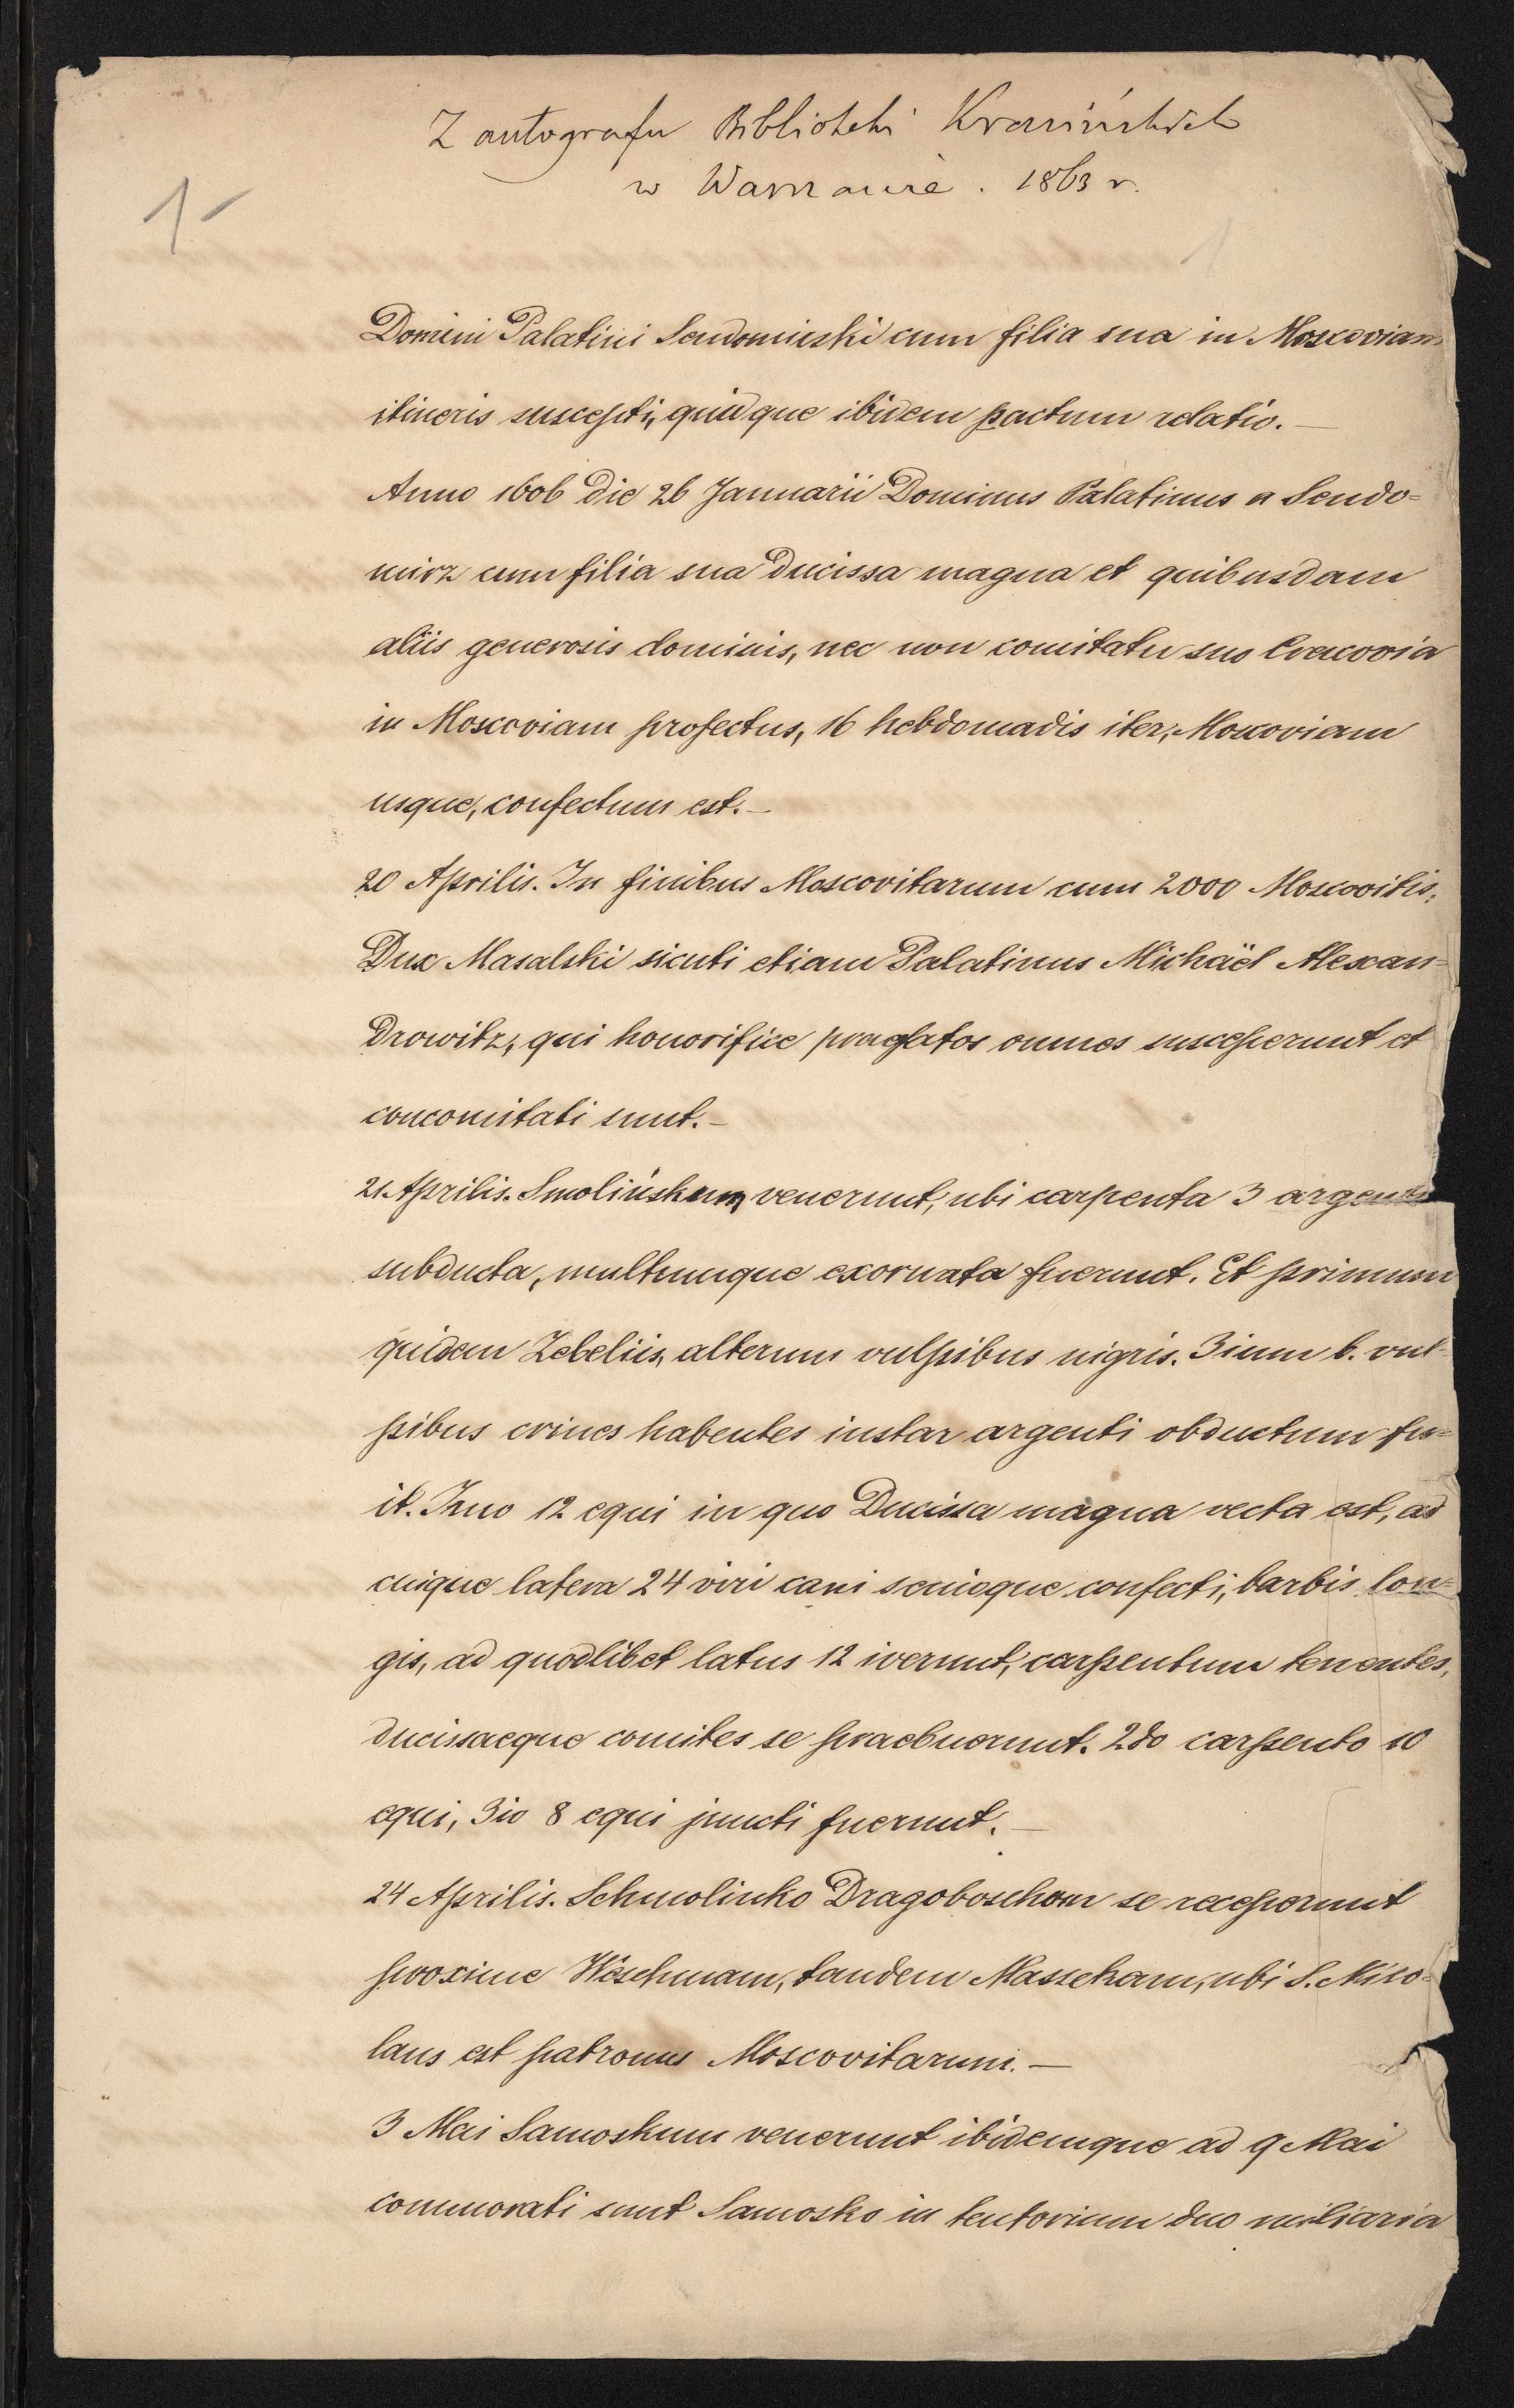 Z autografu Biblioteki Krasińskich
w Warszawie. 1863 r.
1
Domini Palatini Sendomirski cum filia sua in Moscoviam
itineris suscepti, quidque ibidem pactum relatio.—
Anno 1606 die 26 Januarii Dominus Palatinus a Sendo=
mirz cum filia sua Ducissa magna et quibusdam
aliis generosis dominis, nec non comitatu suo Cracovia
in Moscoviam profectus, 16 hebdomadis iter, Moscoviam
usque, confectum est.—
20 Aprilis. In finibus Moscovitarum cum 2000 Moscovitis,
Dux Masalski sicuti etiam Palatinus Michäel Alexan=
drowitz, qui honorifice praefatos omnes susceperunt et
concomitati sunt.—
21 Aprilis. Smolińskum venerunt, ubi carpenta 3 argento
subducta, multumque exornata fuerunt. Et primum
quidem Zebeliis, alterum vulpibus nigris. 3ium b. vul-
pibus crines habentes instar argenti obductum fu=
it. Imo 12 equi in quo Ducissa magna vecta est, ad
cuique latera 24 viri cani senioque confecti, barbis lon=
gis, ad quodlibet latus 12 iverunt, carpentum tenentes,
ducissaeque comites se praebuerunt. 2do carpento 10
equi, 3io 8 equi juncti fuerunt.—
24 Aprilis. Schmolinko Dragoboscham se receperunt
proxime Weschmam, tandem Masseham, ubi S. Nico=
laus est patronus Moscovitarum.—
3 Mai Samoskum venerunt ibidemque ad 9 Mai
commorati sunt Samosko in tentorium duo miliaria